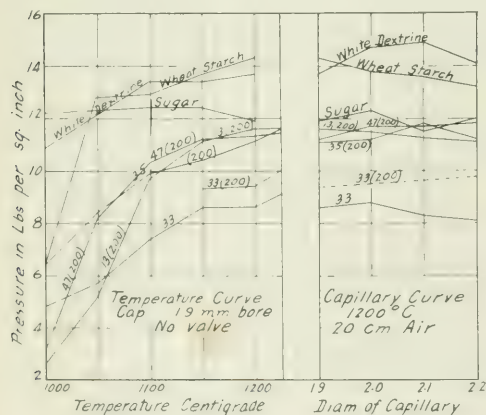 16
14
12
10
8
6
4
2
Pressure in Lbs per sq. inch
White Dextrine
Wheat Starch
Sugar
47(200)
35
(200)
33(200)
33
47(200)
13(200)
Temperature Curve
Cap 19 mm bore
No valve
1000
1100
1200
Temperature Centigrade
White Dextrine
Wheat Starch
Sugar
47(200)
35(200)
33(200)
33
Capillary Curve
1200°C
20 cm Air
1.9
2.0
2.1
2.2
Diam of Capillary